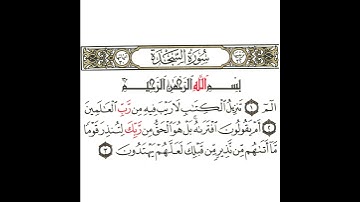 سُورَةُ السَّجْدَةِ
بِسْمِ اللَّهِ الرَّحْمَٰنِ الرَّحِيمِ
الٓمٓ ۝١ تَنزِيلُ ٱلْكِتَٰبِ لَا رَيْبَ فِيهِ مِن رَّبِّ ٱلْعَٰلَمِينَ
۝٢ أَمْ يَقُولُونَ ٱفْتَرَىٰهُ بَلْ هُوَ ٱلْحَقُّ مِن رَّبِّكَ لِتُنذِرَ قَوْمًا
مَّآ أَتَىٰهُم مِّن نَّذِيرٍ مِّن قَبْلِكَ لَعَلَّهُمْ يَهْتَدُونَ ۝٣